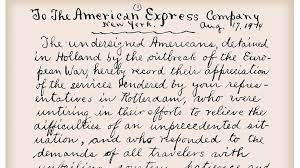 To The American Express Company
New York. Aug. 17, 1914
The undersigned Americans, detained
in Holland by the outbreak of the Euro-
pean War, hereby record their appreciation
of the services rendered by your repre-
sentatives in Rotterdam, who were
untiring in their efforts to relieve the
difficulties of an unprecedented sit-
uation, and who responded to the
demands of all travelers with
courtesy, patience and